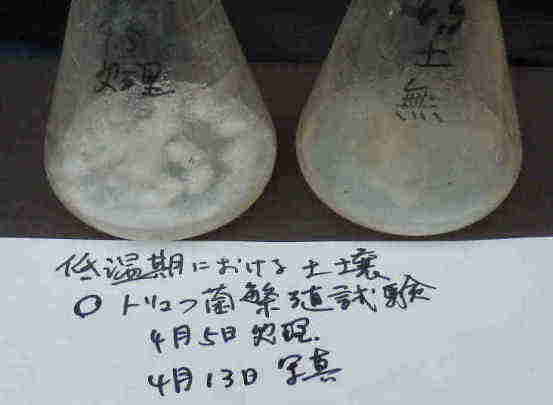 処理
土
無
低温期における土壌
○トリコフ菌繁殖試験
4月5日処理.
4月13日 写真